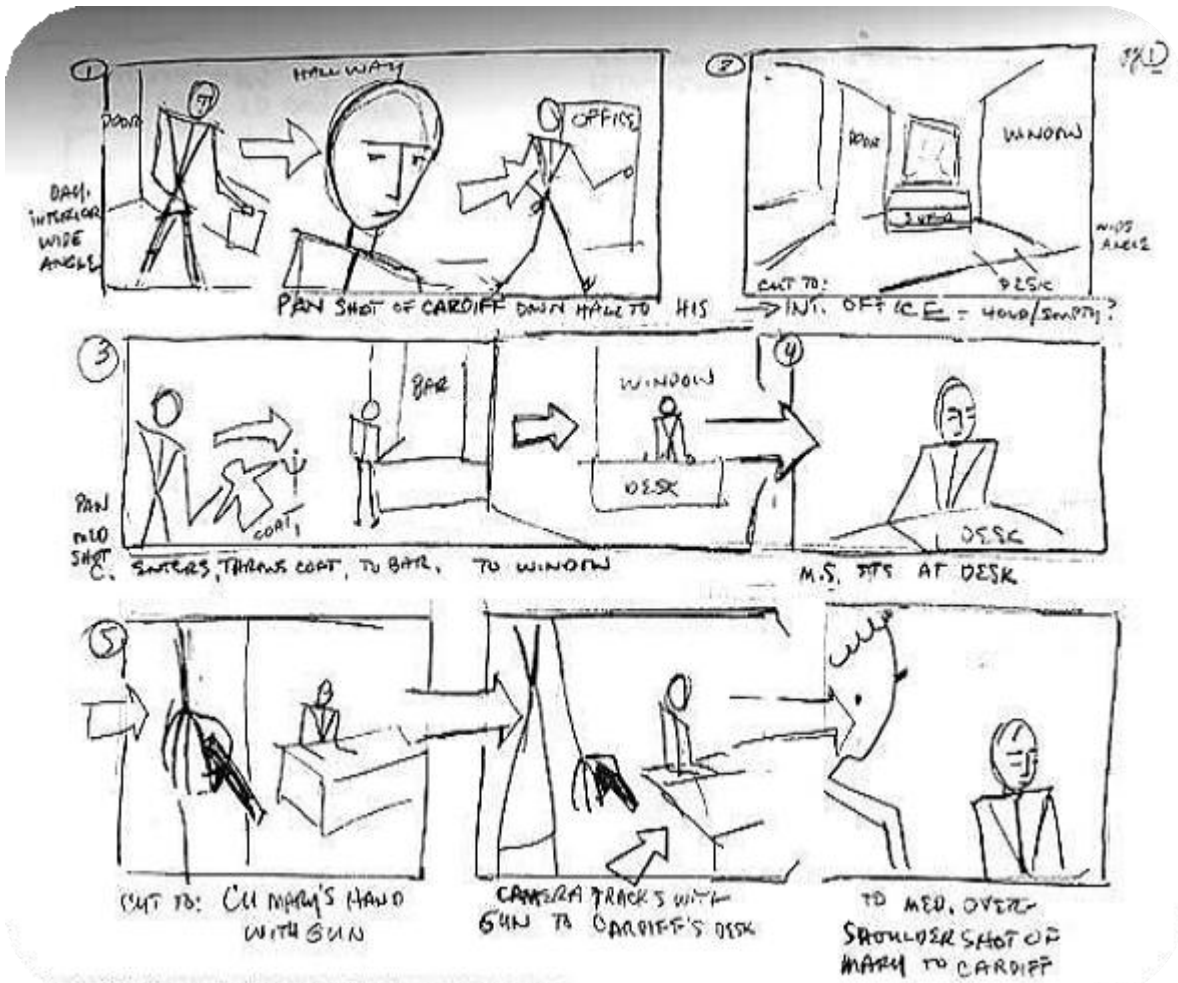 ①
HALLWAY
DOOR
OFFICE
DAY.
INTERIOR
WIDE
ANGLE
PAN SHOT OF CARDIFF DOWN HALL TO HIS
②
DOOR
WINDOW
WIDE
ANGLE
CUT TO:
DESK
→ INT. OFFICE - HOLD/EMPTY?
③
BAR
WINDOW
DESK
COAT
PAN
MED
SHOT
C. ENTERS, THROWS COAT, TO BAR, TO WINDOW
④
DESK
M.S. SITS AT DESK
⑤
CUT TO: CU MARY'S HAND
WITH GUN
CAMERA TRACKS WITH
GUN TO CARDIFF'S DESK
TO MED. OVER-
SHOULDER SHOT OF
MARY TO CARDIFF